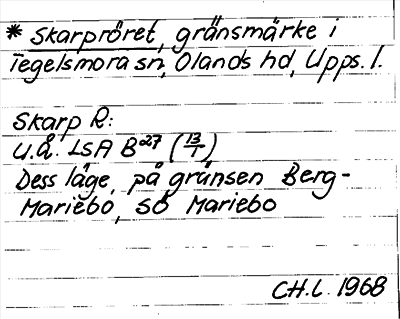 * Skarpröret, gränsmärke i
Tegelsmora sn, Olands hd, Upps. l.
Skarp R:
U.Å. LSA B27 (13/1)
Dess läge, på gränsen Berg-
Mariebo, SO Mariebo
CH.L. 1968